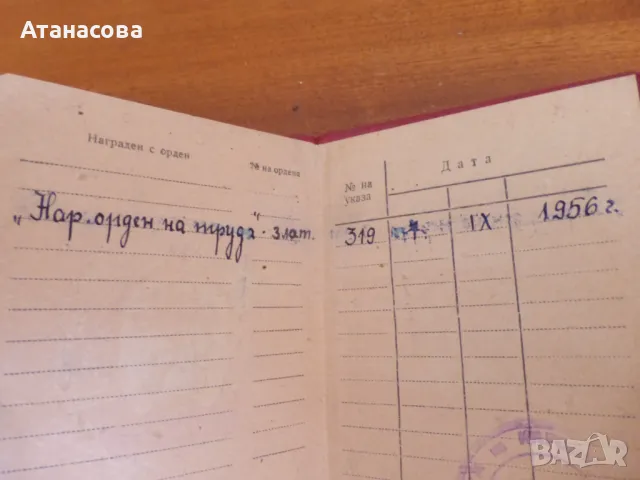 Атанасова
Награден с орден
№ на ордена
№ на
указа
Дата
„Нар. орден на труда“ - злат.
319
7.
IX
1956 г.
BAZAR